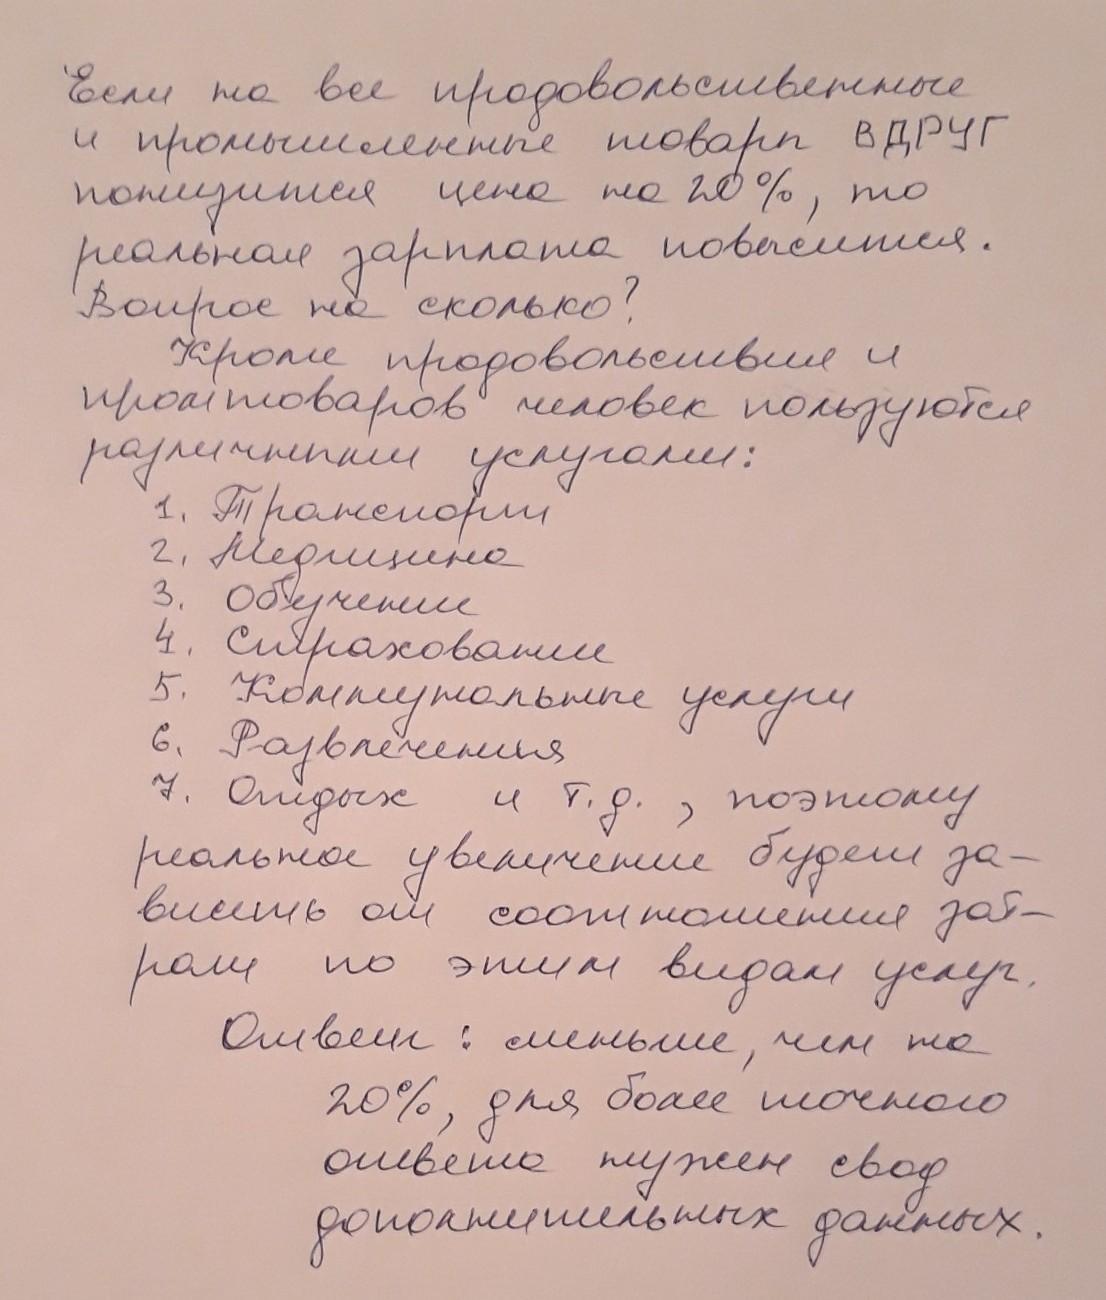 Если на все продовольственные
и промышленные товары ВДРУГ
понизится цена на 20%, то
реальная зарплата повысится.
Вопрос на сколько?
Кроме продовольствия и
промтоваров человек пользуются
различными услугами:
1. Транспорт
2. Медицина
3. Обучение
4. Страхование
5. Коммунальные услуги
6. Развлечения
7. Отдых и т.д., поэтому
реальное увеличение будет за-
висеть от соотношения зат-
рат по этим видам услуг.
Ответ: меньше, чем на
20%, для более точного
ответа нужен свод
дополнительных данных.